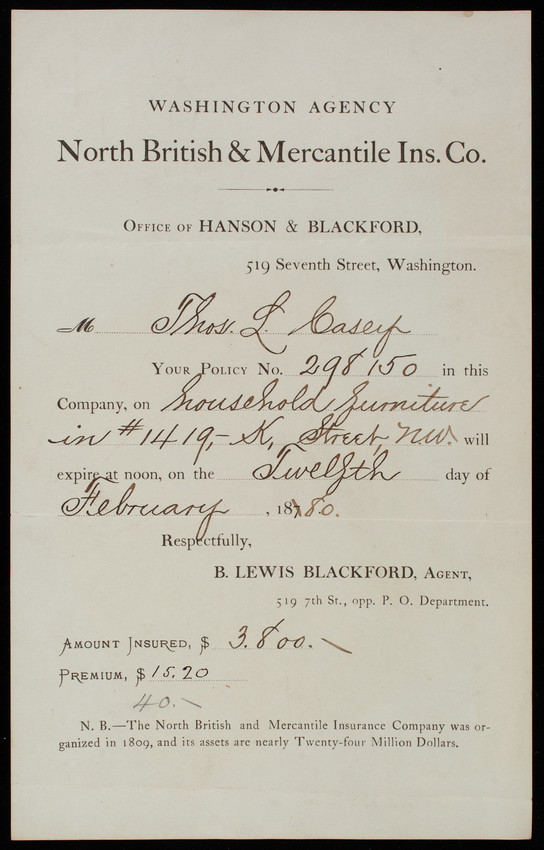 WASHINGTON AGENCY
North British & Mercantile Ins. Co.
OFFICE OF HANSON & BLACKFORD,
519 Seventh Street, Washington.
M Thos. L. Casey
YOUR POLICY No. 298150 in this
Company, on household furniture
in # 1419,- K, Street, N.W. will
expire at noon, on the Twelfth day of
February, 1880.
Respectfully,
B. LEWIS BLACKFORD, AGENT,
519 7th St., opp. P. O. Department.
AMOUNT INSURED, $ 3.800.-
PREMIUM, $ 15.20
40.-
N. B.—The North British and Mercantile Insurance Company was or-
ganized in 1809, and its assets are nearly Twenty-four Million Dollars.